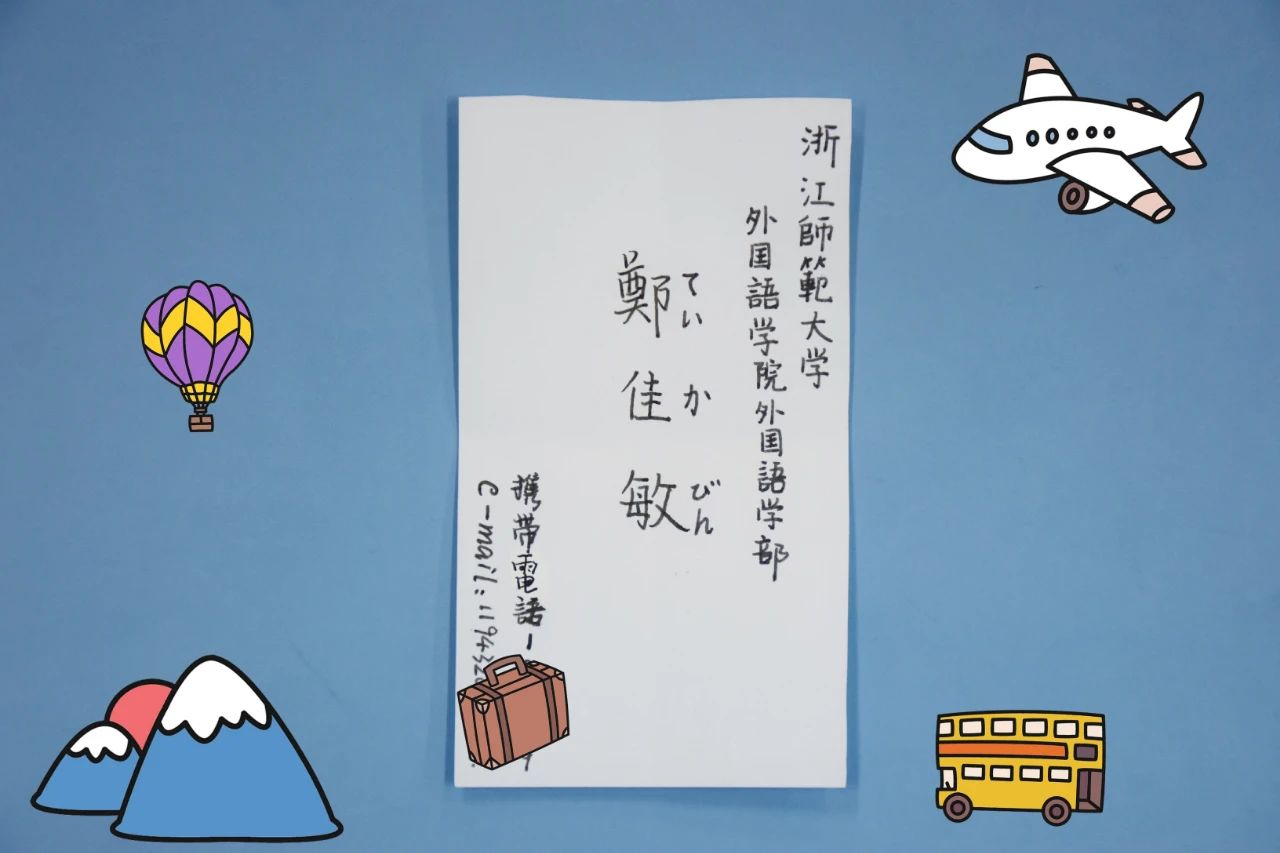 浙江師範大学
外国語学院外国語学部
鄭佳敏
ていかびん
携帯電話
e-mail: 119432